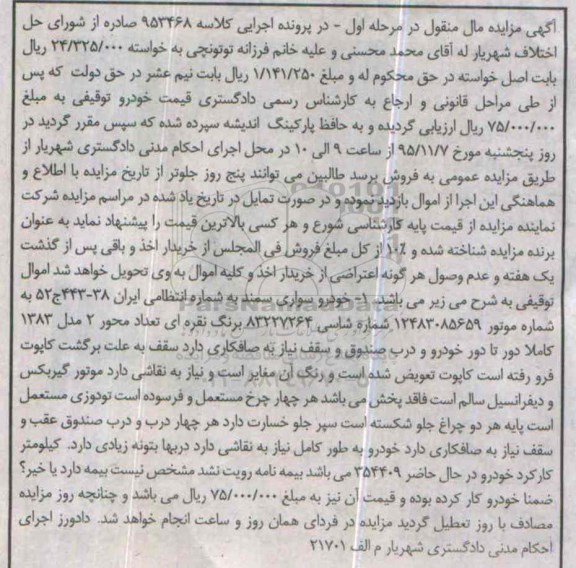 آگهی مزایده مال منقول در مرحله اول - در پرونده اجرایی کلاسه ۹۵۳۴۶۸ صادره از شورای حل
اختلاف شهریار له آقای محمد محسنی و علیه خانم فرزانه توتونچی به خواسته ۲۴/۳۲۵/۰۰۰ ریال
بابت اصل خواسته در حق محکوم له و مبلغ ۱/۱۴۱/۲۵۰ ریال بابت نیم عشر در حق دولت که پس
از طی مراحل قانونی و ارجاع به کارشناس رسمی دادگستری قیمت خودرو توقیفی به مبلغ
۷۵/۰۰۰/۰۰۰ ریال ارزیابی گردیده و به حافظ پارکینگ اندیشه سپرده شده که سپس مقرر گردید در
روز پنجشنبه مورخ ۹۵/۱۱/۷ از ساعت ۹ الی ۱۰ در محل اجرای احکام مدنی دادگستری شهریار از
طریق مزایده عمومی به فروش برسد طالبین می توانند پنج روز جلوتر از تاریخ مزایده با اطلاع و
هماهنگی این اجرا از اموال بازدید نموده و در صورت تمایل در تاریخ یاد شده در مراسم مزایده شرکت
نماینده مزایده از قیمت پایه کارشناسی شورع و هر کسی بالاترین قیمت را پیشنهاد نماید به عنوان
برنده مزایده شناخته شده و ۱۰٪ از کل مبلغ فروش فی المجلس از خریدار اخذ و باقی پس از گذشت
یک هفته و عدم وصول هر گونه اعتراضی از خریدار اخذ و کلیه اموال به وی تحویل خواهد شد اموال
توقیفی به شرح می زیر می باشد. ۱- خودرو سواری سمند به شماره انتظامی ایران ۳۸-۴۴۳ج۵۲ به
شماره موتور ۱۲۴۸۳۰۸۵۶۵۹ شماره شاسی ۸۳۲۲۷۲۶۴ برنگ نقره ای تعداد محور ۲ مدل ۱۳۸۳
کاملا دور تا دور خودرو و درب صندوق و سقف نیاز به صافکاری دارد سقف به علت برگشت کاپوت
فرو رفته است کاپوت تعویض شده است و رنگ آن مغایر است و نیاز به نقاشی دارد موتور گیربکس
و دیفرانسیل سالم است فاقد پخش می باشد هر چهار چرخ مستعمل و فرسوده است تودوزی مستعمل
است پایه هر دو چراغ جلو شکسته است سپر جلو خسارت دارد هر چهار درب و درب صندوق عقب و
سقف نیاز به صافکاری دارد خودرو به طور کامل نیاز به نقاشی دارد دربها بتونه زیادی دارد. کیلومتر
کارکرد خودرو در حال حاضر ۳۵۴۴۰۹ می باشد بیمه نامه رویت نشد مشخص نیست بیمه دارد یا خیر؟
ضمنا خودرو کار کرده بوده و قیمت آن نیز به مبلغ ۷۵/۰۰۰/۰۰۰ ریال می باشد و چنانچه روز مزایده
مصادف با روز تعطیل گردید مزایده در فردای همان روز و ساعت انجام خواهد شد. دادورز اجرای
احکام مدنی دادگستری شهریار م الف ۲۱۷۰۱